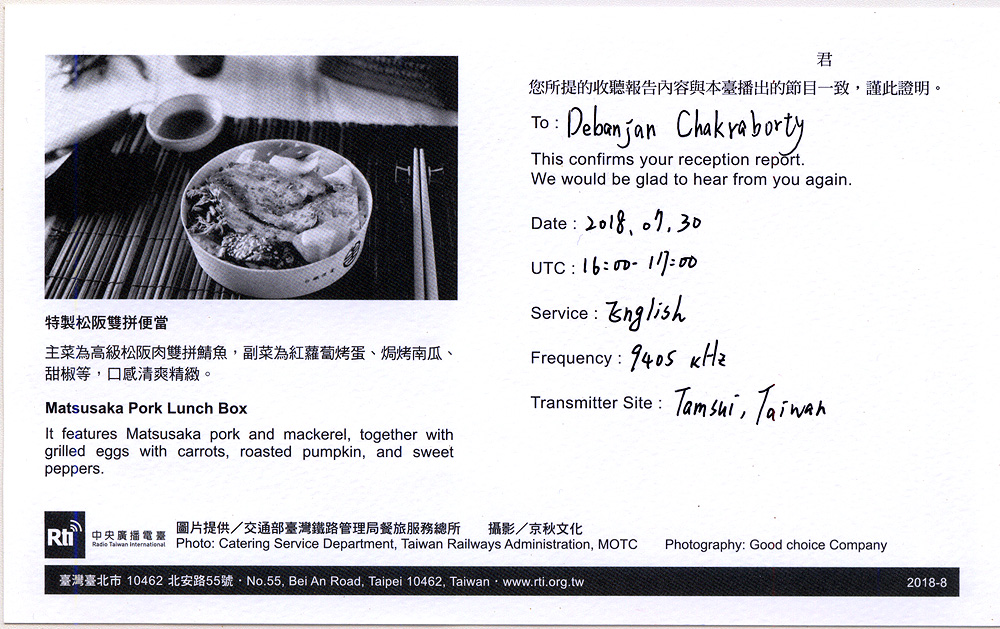 特製松阪雙拼便當
主菜為高級松阪肉雙拼鯖魚，副菜為紅蘿蔔烤蛋、焗烤南瓜、
甜椒等，口感清爽精緻。
Matsusaka Pork Lunch Box
It features Matsusaka pork and mackerel, together with
grilled eggs with carrots, roasted pumpkin, and sweet
peppers.
君
您所提的收聽報告內容與本臺播出的節目一致，謹此證明。
To : Debanjan Chakraborty
This confirms your reception report.
We would be glad to hear from you again.
Date : 2018. 07. 30
UTC : 16:00- 17:00
Service : English
Frequency : 9405 kHz
Transmitter Site : Tamsui, Taiwan
Rti 中央廣播電臺
Radio Taiwan International
圖片提供／交通部臺灣鐵路管理局餐旅服務總所 攝影／京秋文化
Photo: Catering Service Department, Taiwan Railways Administration, MOTC Photography: Good choice Company
臺灣臺北市 10462 北安路55號・No.55, Bei An Road, Taipei 10462, Taiwan・www.rti.org.tw 2018-8